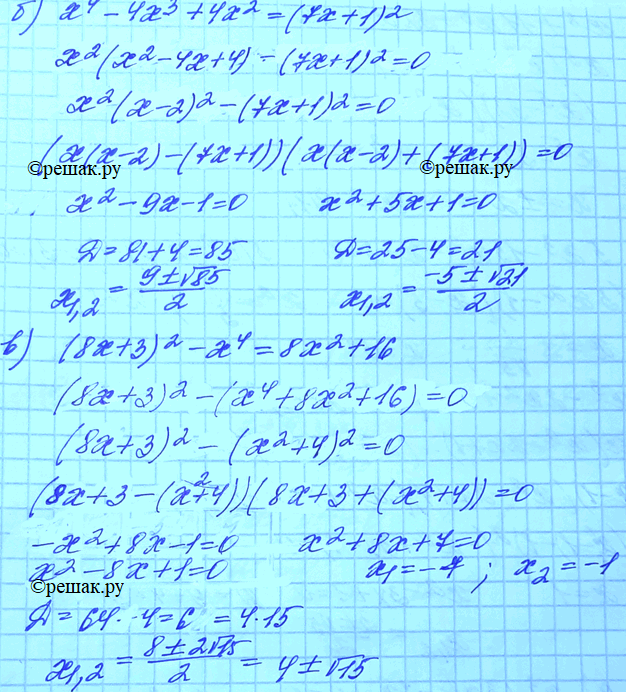 б) x⁴ − 4x³ + 4x² = (7x+1)²
x²(x² − 4x + 4) − (7x+1)² = 0
x²(x−2)² − (7x+1)² = 0
(x(x−2) − (7x+1))(x(x−2) + (7x+1)) = 0
©решак.ру ©решак.ру
x² − 9x − 1 = 0 x² + 5x + 1 = 0
Д = 81 + 4 = 85 Д = 25 − 4 = 21
x1,2 = (9 ± √85)/2 x1,2 = (−5 ± √21)/2
в) (8x+3)² − x⁴ = 8x² + 16
(8x+3)² − (x⁴ + 8x² + 16) = 0
(8x+3)² − (x² + 4)² = 0
(8x+3 − (x²+4))(8x+3 + (x²+4)) = 0
−x² + 8x − 1 = 0 x² + 8x + 7 = 0
x² − 8x + 1 = 0 x1 = −7 ; x2 = −1
©решак.ру
Д = 64 − 4 = 6 = 4·15
x1,2 = (8 ± 2√15)/2 = 4 ± √15